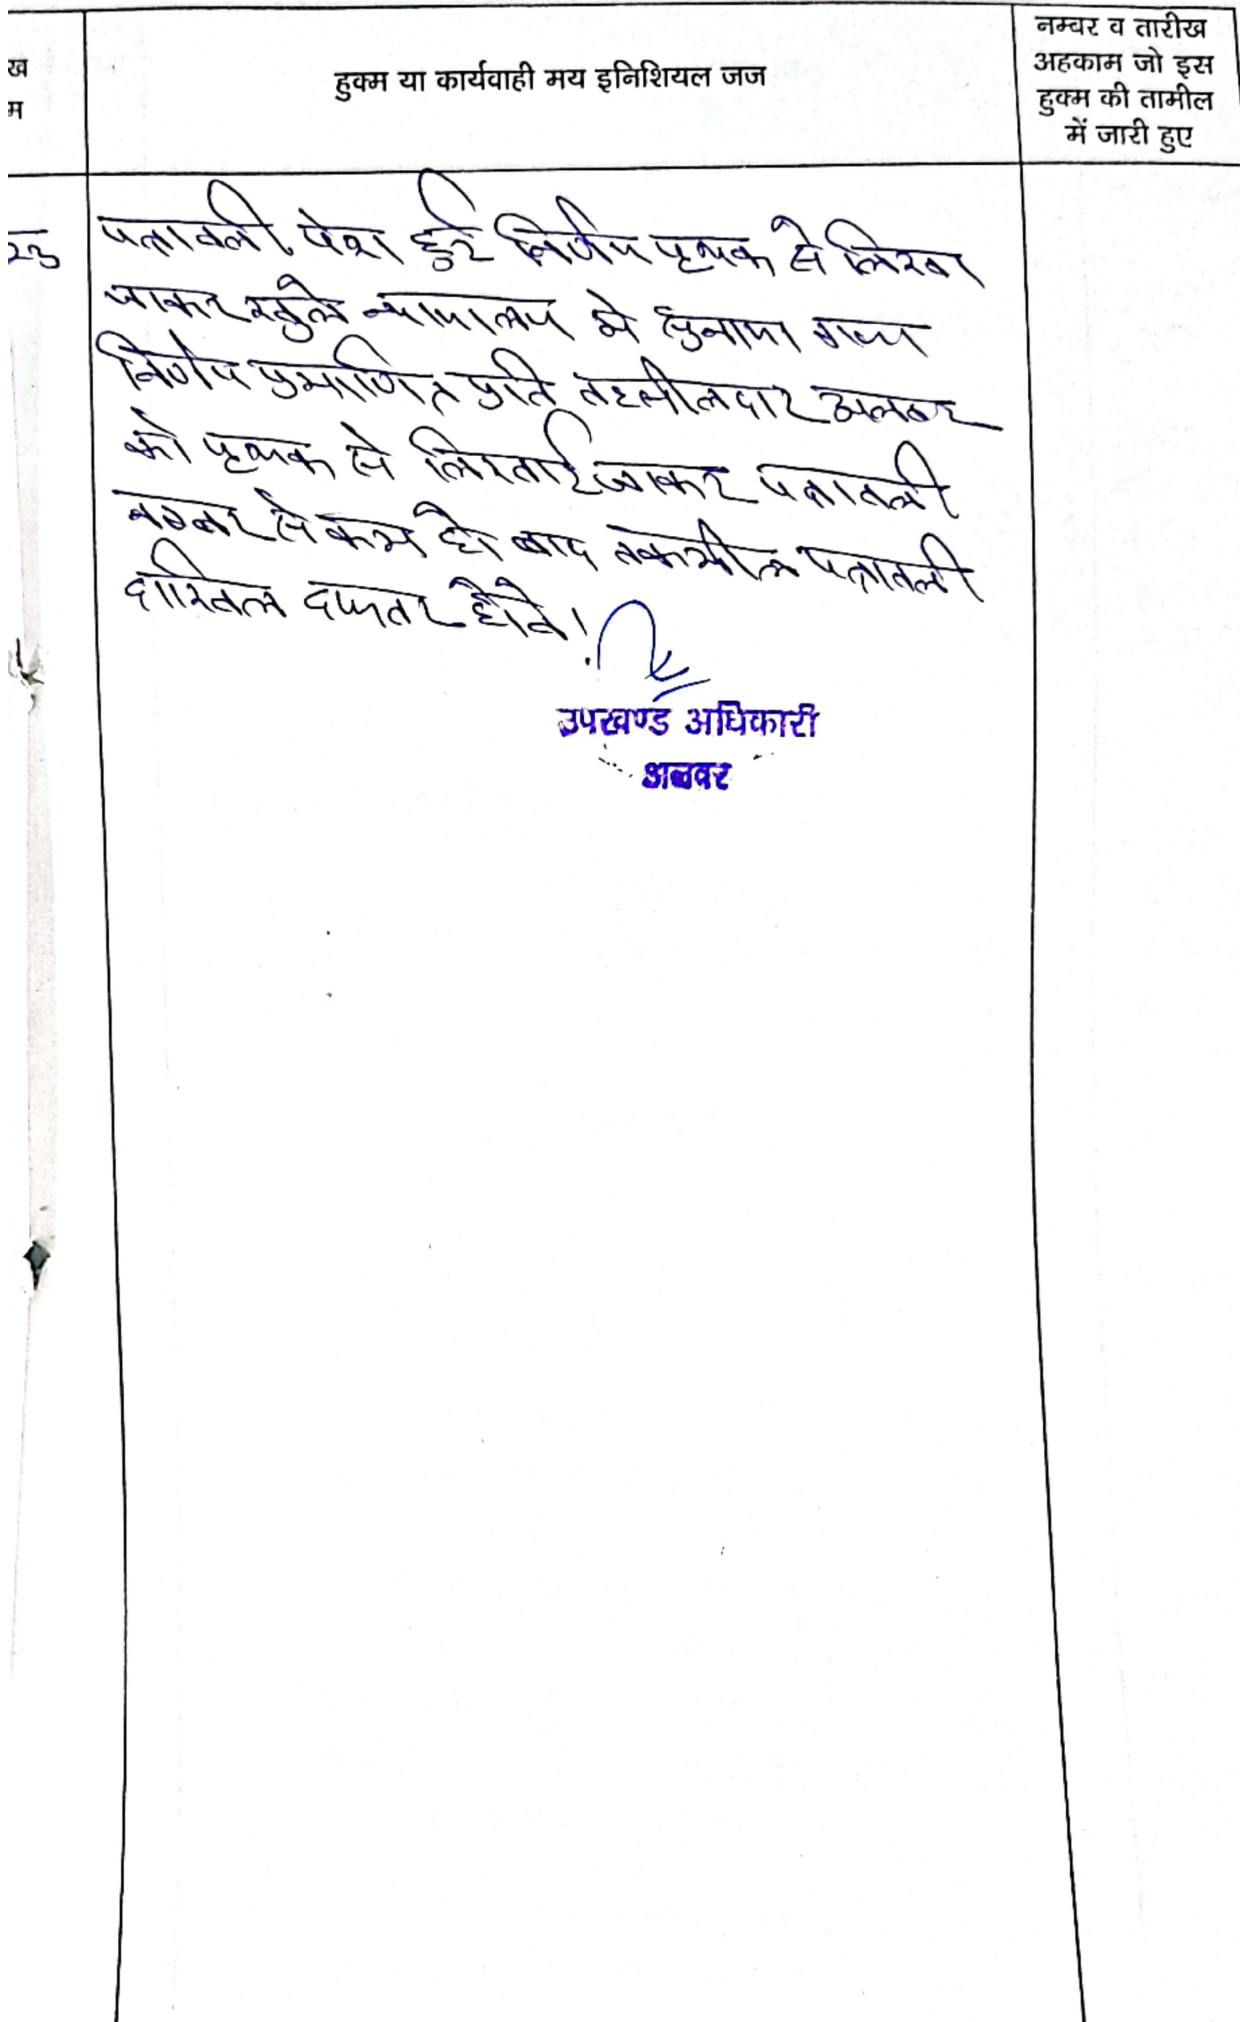 ख
म
हुक्म या कार्यवाही मय इनिशियल जज
नम्बर व तारीख
अहकाम जो इस
हुक्म की तामील
में जारी हुए
पत्रावली पेश हुई निर्णय पृथक से लिखा
जाकर खुले न्यायालय में सुनाया गया
निर्णय प्रमाणित प्रति तहसीलदार अलवर
को पृथक से लिखाई जाकर पत्रावली
नम्बर से कम हो बाद तकमील पत्रावली
दाखिल दफ्तर होवे।
उपखण्ड अधिकारी
अलवर